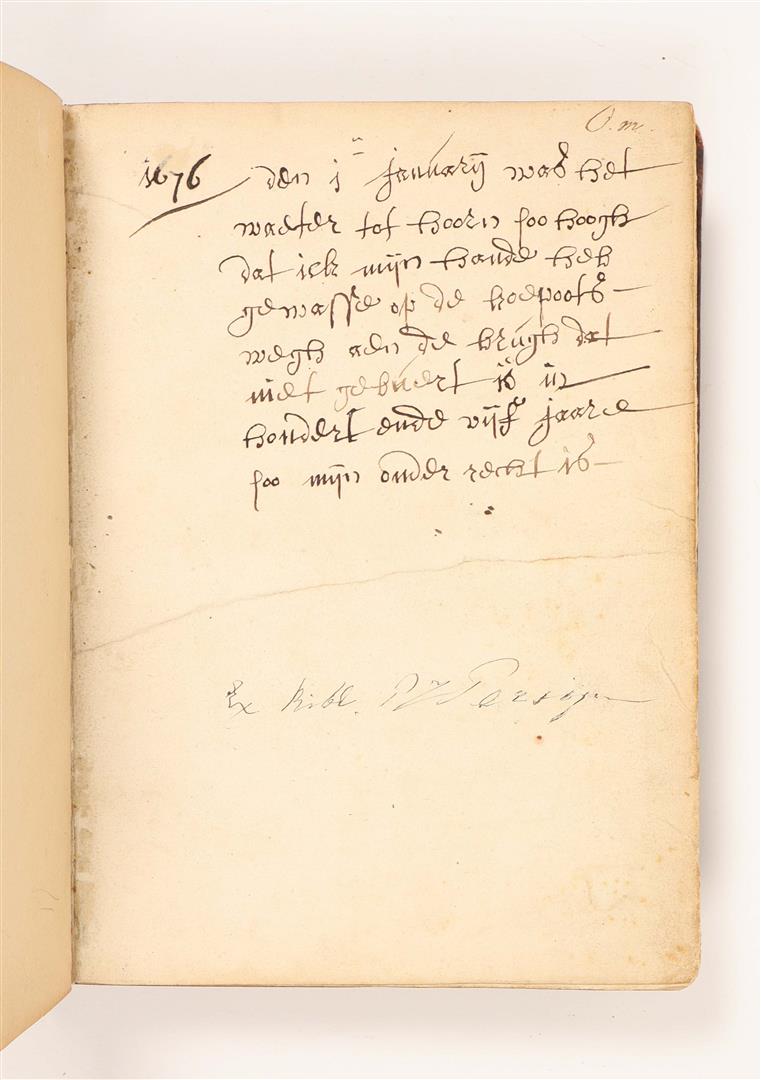 O.m.
1676 den 1en januarij was het
waeter tot hoorn soo hoogh
dat ick mijn hande heb
gewasse op de koepoots
wegh aen de brugh dat
niet gebuert is in
hondert ende vijf jaare
soo mijn onder recht is
Ex Bibl.